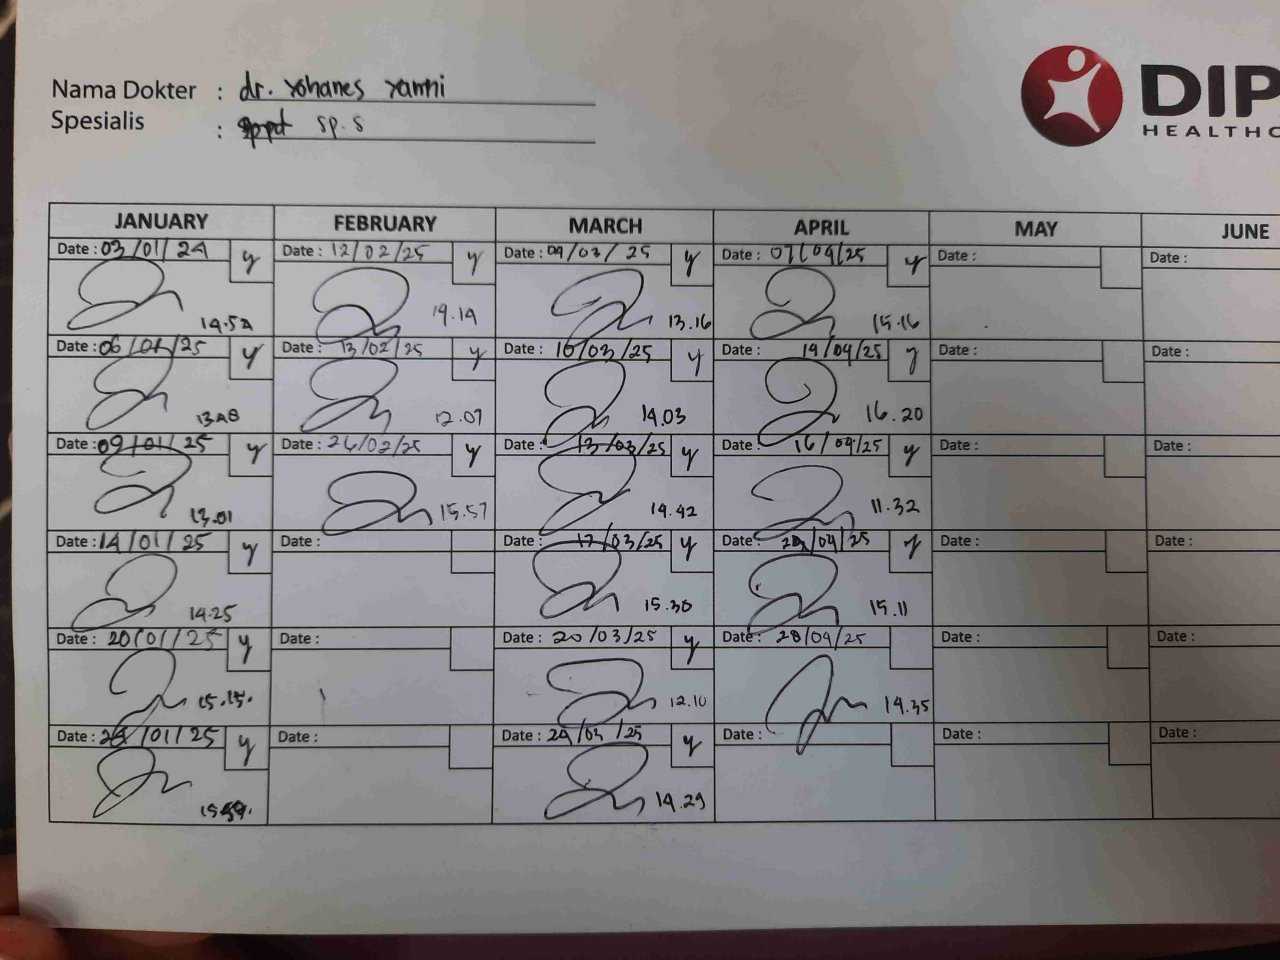 Nama Dokter : dr. Yohanes Yanni
DIP
HEALTHC
Spesialis : sp.s
JANUARY FEBRUARY MARCH APRIL MAY JUNE
Date : 03/01/24 y Date : 12/02/25 y Date : 09/03/25 y Date : 07/04/25 y Date : Date :
14.52 14.14 13.16 15.16
Date : 06/01/25 y Date : 13/02/25 y Date : 10/03/25 y Date : 14/04/25 y Date : Date :
12.07 14.03 16.20
Date : 09/01/25 y Date : 26/02/25 y Date : 13/03/25 y Date : 16/04/25 y Date : Date :
13.01 15.57 14.42 11.32
Date : 14/01/25 y Date : Date : 17/03/25 y Date : /04/25 y Date : Date :
14.25 15.30 15.11
Date : 20/01/25 y Date : Date : 20/03/25 y Date : 28/04/25 Date : Date :
15.15. 12.10 14.35
Date : /01/25 y Date : Date : 24/03/25 y Date : Date : Date :
14.29